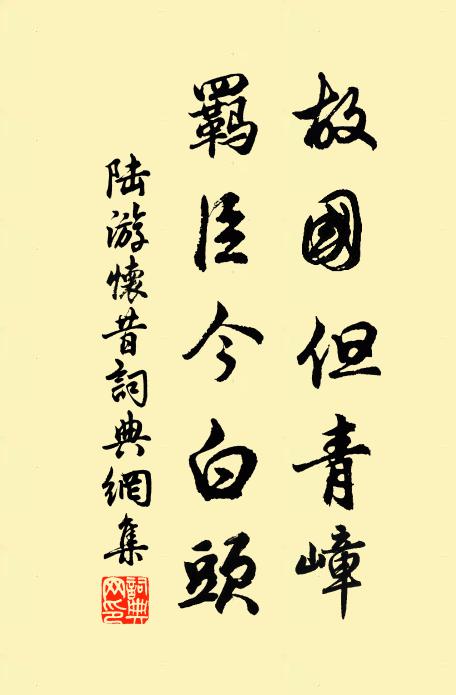 故國但青嶂
羈臣今白頭
陸游懷昔詞典網集
詞典网印